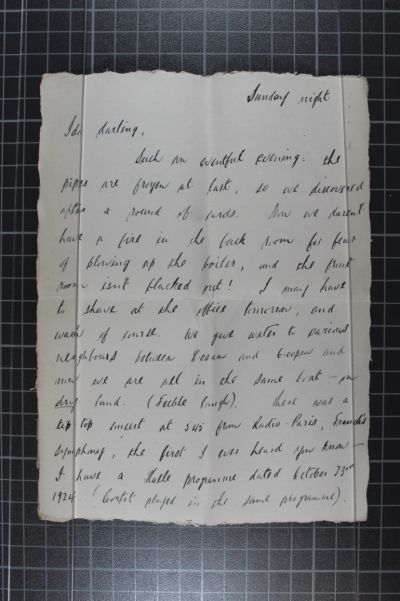 Sunday night
Ida darling,
Such an eventful evening: the
pipes are frozen at last, so we discovered
after a round of cards. Now we daren't
have a fire in the back room for fear
of blowing up the boiler, and the front
room isn't blacked out! I may have
to shave at the office tomorrow, and
wash of course. We gave water to various
neighbours between 8.00am and 6.00pm and
now we are all in the same boat — on
dry land. (Feeble laugh). There was a
tip top concert at 5.45 from Radio-Paris, Franck's
Symphony, the first I ever heard you know —
I have a Halle programme dated October 23rd
1924. (Cortot played in the same programme).